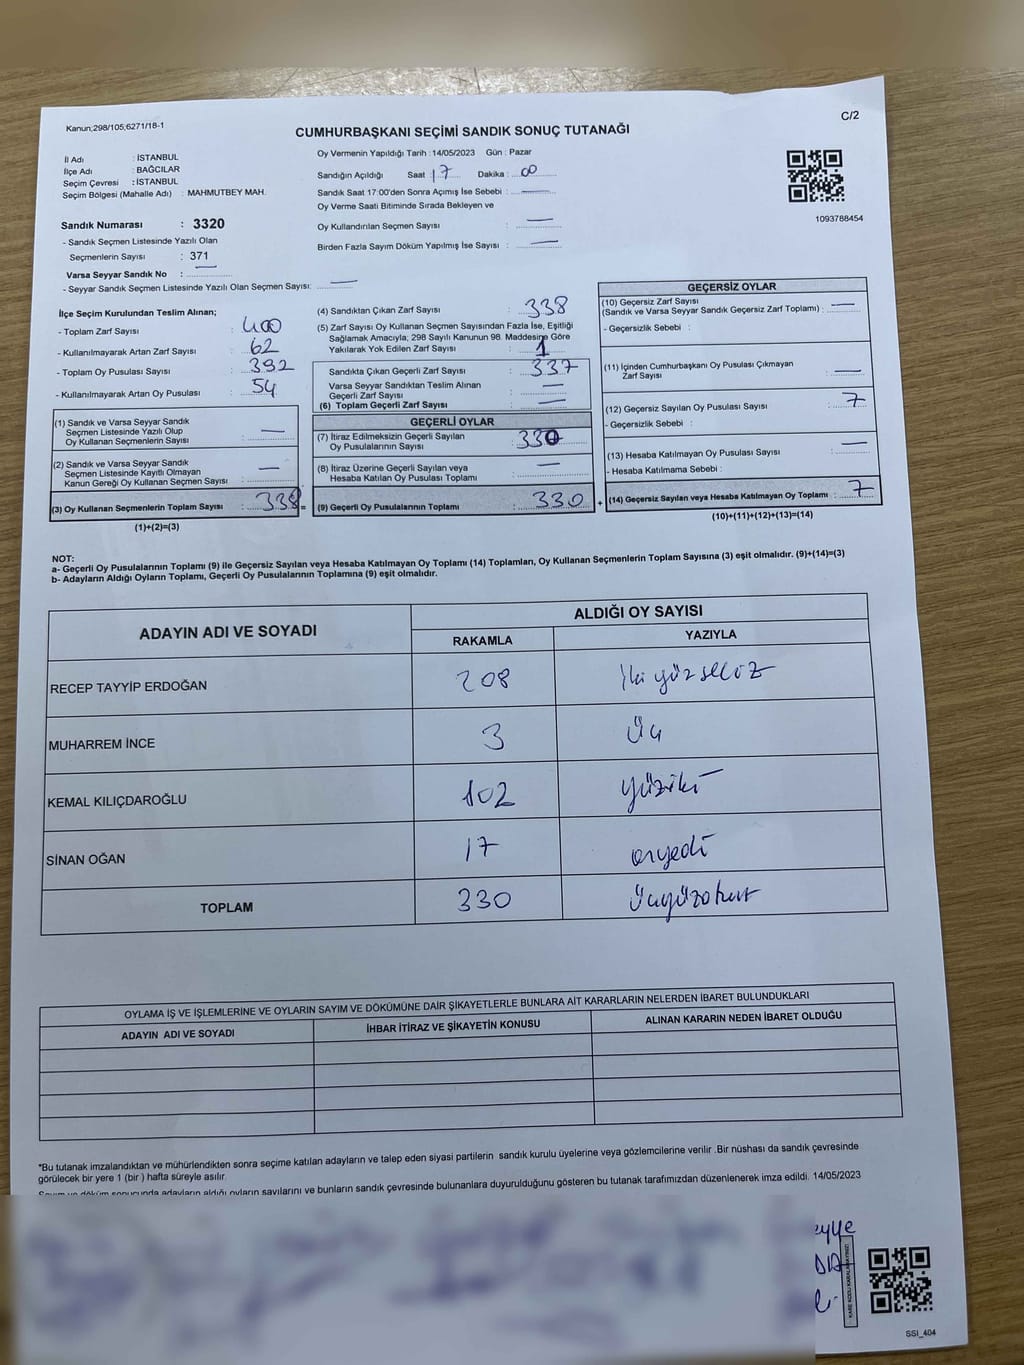 Kanun;298/105;6271/18-1
C/2
CUMHURBAŞKANI SEÇİMİ SANDIK SONUÇ TUTANAĞI
İl Adı : İSTANBUL
İlçe Adı : BAĞCILAR
Seçim Çevresi : İSTANBUL
Seçim Bölgesi (Mahalle Adı) : MAHMUTBEY MAH.
Sandık Numarası : 3320
- Sandık Seçmen Listesinde Yazılı Olan
Seçmenlerin Sayısı : 371
Varsa Seyyar Sandık No : —
- Seyyar Sandık Seçmen Listesinde Yazılı Olan Seçmen Sayısı: —
Oy Vermenin Yapıldığı Tarih :14/05/2023 Gün : Pazar
Sandığın Açıldığı Saat : 17 Dakika : 00
Sandık Saat 17:00'den Sonra Açımış İse Sebebi : —
Oy Verme Saati Bitiminde Sırada Bekleyen ve
Oy Kullandırılan Seçmen Sayısı : —
Birden Fazla Sayım Döküm Yapılmış İse Sayısı : —
1093788454
İlçe Seçim Kurulundan Teslim Alınan;
- Toplam Zarf Sayısı : 400
- Kullanılmayarak Artan Zarf Sayısı : 62
- Toplam Oy Pusulası Sayısı : 392
- Kullanılmayarak Artan Oy Pusulası : 54
(1) Sandık ve Varsa Seyyar Sandık
Seçmen Listesinde Yazılı Olup
Oy Kullanan Seçmenlerin Sayısı : —
(2) Sandık ve Varsa Seyyar Sandık
Seçmen Listesinde Kayıtlı Olmayan
Kanun Gereği Oy Kullanan Seçmen Sayısı : —
(3) Oy Kullanan Seçmenlerin Toplam Sayısı : 338 =
(1)+(2)=(3)
(4) Sandıktan Çıkan Zarf Sayısı : 338
(5) Zarf Sayısı Oy Kullanan Seçmen Sayısından Fazla İse, Eşitliği
Sağlamak Amacıyla; 298 Sayılı Kanunun 98. Maddesine Göre
Yakılarak Yok Edilen Zarf Sayısı : 1
Sandıkta Çıkan Geçerli Zarf Sayısı : 337
Varsa Seyyar Sandıktan Teslim Alınan
Geçerli Zarf Sayısı : —
(6) Toplam Geçerli Zarf Sayısı : —
GEÇERLİ OYLAR
(7) İtiraz Edilmeksizin Geçerli Sayılan
Oy Pusulasının Sayısı : 330
(8) İtiraz Üzerine Geçerli Sayılan veya
Hesaba Katılan Oy Pusulası Toplamı : —
(9) Geçerli Oy Pusulalarının Toplamı : 330 +
GEÇERSİZ OYLAR
(10) Geçersiz Zarf Sayısı
(Sandık ve Varsa Seyyar Sandık Geçersiz Zarf Toplamı) : —
- Geçersizlik Sebebi :
(11) İçinden Cumhurbaşkanı Oy Pusulası Çıkmayan
Zarf Sayısı : —
(12) Geçersiz Sayılan Oy Pusulası Sayısı : 7
- Geçersizlik Sebebi :
(13) Hesaba Katılmayan Oy Pusulası Sayısı : —
- Hesaba Katılmama Sebebi :
(14) Geçersiz Sayılan veya Hesaba Katılmayan Oy Toplamı : 7
(10)+(11)+(12)+(13)=(14)
NOT:
a- Geçerli Oy Pusulalarının Toplamı (9) ile Geçersiz Sayılan veya Hesaba Katılmayan Oy Toplamı (14) Toplamları, Oy Kullanan Seçmenlerin Toplam Sayısına (3) eşit olmalıdır. (9)+(14)=(3)
b- Adayların Aldığı Oyların Toplamı, Geçerli Oy Pusulalarının Toplamına (9) eşit olmalıdır.
ADAYIN ADI VE SOYADI
ALDIĞI OY SAYISI
RAKAMLA YAZIYLA
RECEP TAYYİP ERDOĞAN 208 iki yüz sekiz
MUHARREM İNCE 3 üç
KEMAL KILIÇDAROĞLU 102 yüziki
SİNAN OĞAN 17 onyedi
TOPLAM 330 üçyüzotuz
OYLAMA İŞ VE İŞLEMLERİNE VE OYLARIN SAYIM VE DÖKÜMÜNE DAİR ŞİKAYETLERLE BUNLARA AİT KARARLARIN NELERDEN İBARET BULUNDUKLARI
ADAYIN ADI VE SOYADI İHBAR İTİRAZ VE ŞİKAYETİN KONUSU ALINAN KARARIN NEDEN İBARET OLDUĞU
*Bu tutanak imzalandıktan ve mühürlendikten sonra seçime katılan adayların ve talep eden siyasi partilerin sandık kurulu üyelerine veya gözlemcilerine verilir .Bir nüshası da sandık çevresinde
görülecek bir yere 1 (bir ) hafta süreyle asılır.
Sayım ve döküm sonucunda adayların aldığı oyların sayılarını ve bunların sandık çevresinde bulunanlara duyurulduğunu gösteren bu tutanak tarafımızdan düzenlenerek imza edildi. 14/05/2023
SSI_404